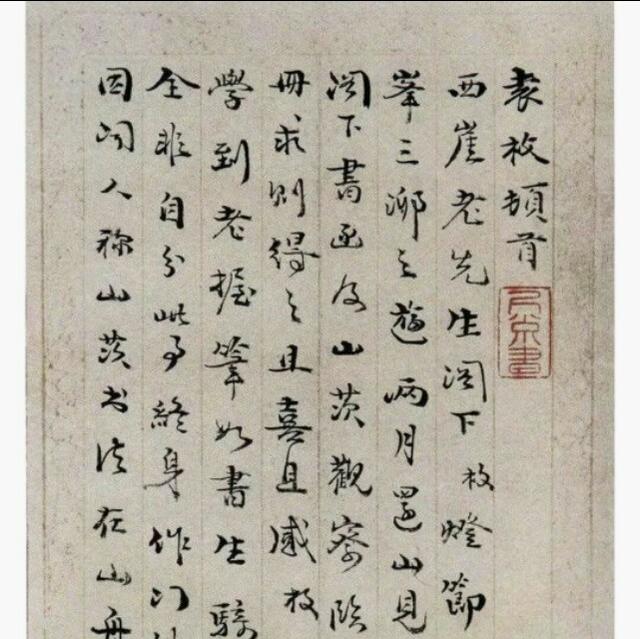 袁枚頓首
西崖老先生閣下枚燈節
峯三泖之遊两月還山見
閣下書函及山茨觀察臨
冊求則得之且喜且感枚
學到老握筆如書生騎
全非自分此事終身作门
因闻人称山茨书法在山舟